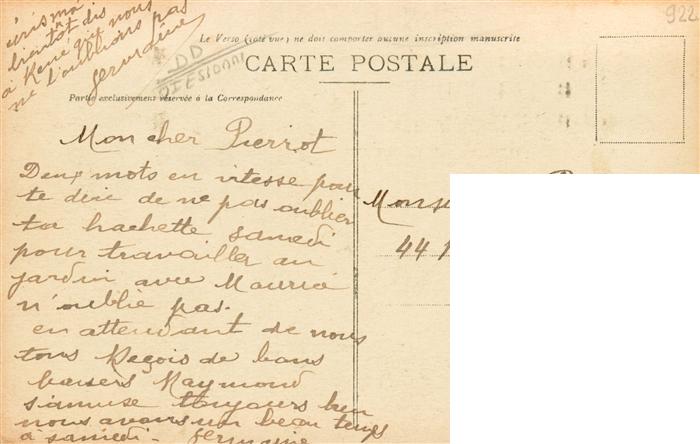 à bientôt dis
à René qu'il nous
ne l'oublions pas
Germaine
922
Le Verso (côté vue) ne doit comporter aucune inscription manuscrite
CARTE POSTALE
Partie exclusivement réservée à la Correspondance
Mon cher Pierrot
Deux mots en vitesse pour
te dire de ne pas oublier
ta hachette samedi
pour travailler au
jardin avec Maurice
n'oublie pas.
en attendant de nous
tous Reçois de bons
baisers Raymond
s'amuse toujours bien
nous avons un beau temps
à samedi - Germaine
Mons
44